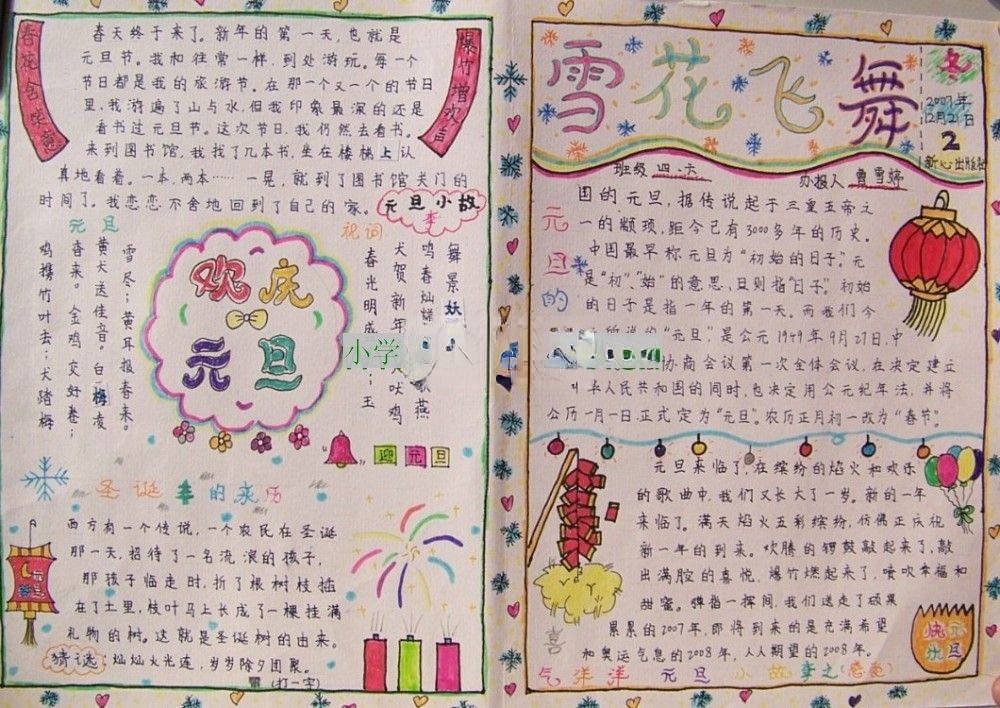 春花含笑意
爆竹增欢声
春天终于来了。新年的第一天，也就是
元旦节。我和往常一样，到处游玩。每一个
节日都是我的旅游节。在那一个又一个的节日
里，我游遍了山与水，但我印象最深的还是
看书过元旦节。这次节日，我仍然去看书。
来到图书馆，我找了几本书，坐在楼梯上认
真地看着。一本，两本……一晃，就到了图书馆关门的
时间了。我恋恋不舍地回到了自己的家。
元旦小故
李
元旦
祝词
雪尽；黄耳报春来。
黄犬送佳音。白梅凌
春来。金鸡交好卷；
鸡携竹叶去；犬踏梅
欢庆
元旦
舞景妖
鸣春灿
犬贺新年
春光明
吠鸡
燕
玉
小学
迎元旦
圣诞的来历
西方有一个传说，一个农民在圣诞
那一天，招待了一名流浪的孩子，
那孩子临走时，折了根树枝插
在了土里，枝叶马上长成了一棵挂满
礼物的树。这就是圣诞树的由来。
猜谜：灿灿火光连，岁岁除夕团聚。
(打一字)
元旦
雪花飞舞
冬
2007年
12月21日
2
新心出版社
班级 四.六
办报人 曹雪婷
元旦的
国的元旦，据传说起于三皇五帝之
一的颛顼，距今已有3000多年的历史。
中国最早称元旦为“初始的日子”。元
是“初”、“始”的意思，旦则指“日子”。初始
的日子是指一年的第一天。而我们今
的说的“元旦”，是公元1949年9月21日，中
协商会议第一次全体会议，在决定建立
人民共和国的同时，也决定用公元纪年法，并将
公历一月一日正式定为“元旦”。农历正月初一改为“春节”。
元旦来临了，在缤纷的焰火和欢乐
的歌曲中，我们又长大了一岁。新的一年
来临了。满天焰火五彩缤纷，仿佛正庆祝
新一年的到来。欢腾的锣鼓敲起来了，敲
出满腔的喜悦，爆竹燃起来了，喷吹幸福和
甜蜜。弹指一挥间，我们送走了硕果
累累的2007年，即将到来的是充满希望
和奥运气息的2008年，人人期望的2008年。
快乐元旦
喜
气洋洋 元旦 小故李之